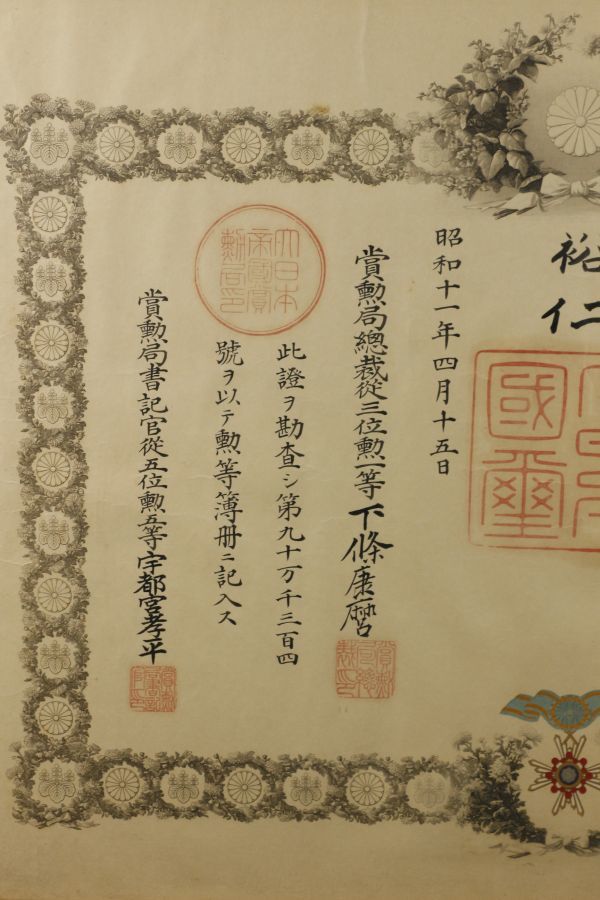 裕仁
大日本國璽
昭和十一年四月十五日
賞勲局總裁從三位勲一等下條康麿
此證ヲ勘査シ第九十万千三百四
號ヲ以テ勲等簿册ニ記入ス
大日本帝國賞勲局印
賞勲局書記官從五位勲五等宇都宮孝平